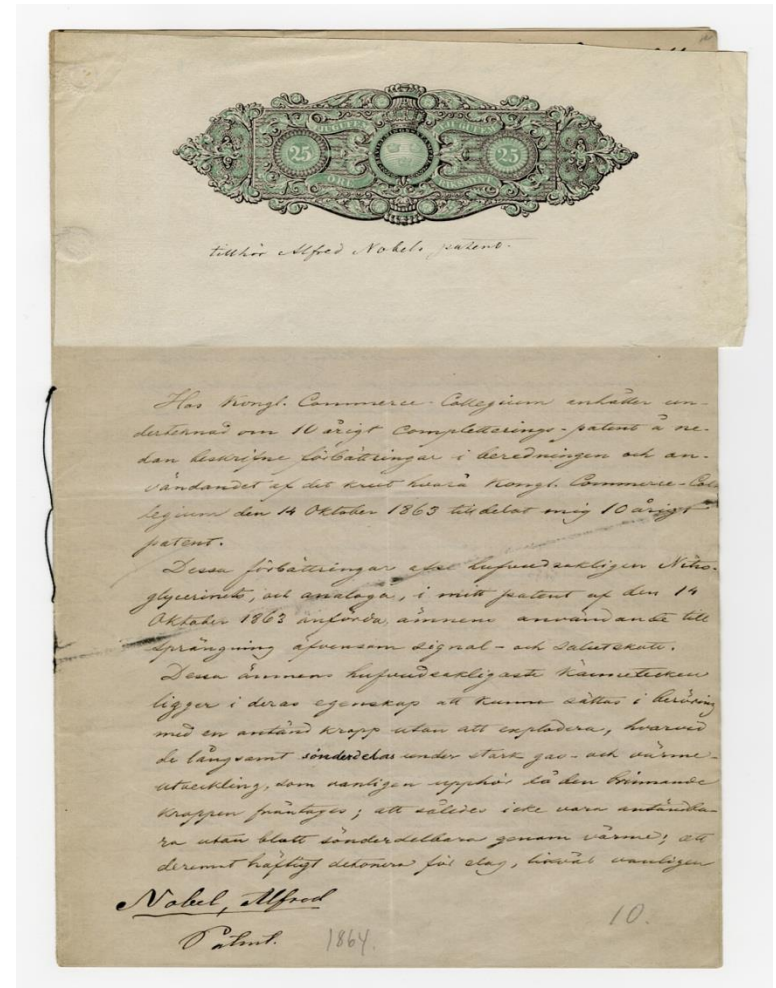 25
25
ÖRE
tillhör Alfred Nobels patent.
Hos Kongl. Commerce-Collegium anhåller un-
dertecknad om 10 årigt Completterings-patent å ne-
dan beskrifne förbättringar i beredningen och an-
vändandet af det krut hvarå Kongl. Commerce-Col
legium den 14 Oktober 1863 tilldelat mig 10 årigt
patent.
Dessa förbättringar afse hufvudsakligen Nitro-
glycerinets, och analoga, i mitt patent af den 14
Oktober 1863 anförda ämnens användande till
sprängning äfvensom signal- och salutskott.
Dessa ämnens hufvudsakligaste kännetecken
ligger i deras egenskap att kunna sättas i beröring
med en antänd kropp utan att explodera, hvarvid
de långsamt sönderdelas under stark gas- och värme-
utveckling, som vanligen upphör då den brinnande
kroppen fråntages; att således icke vara antändba-
ra utan blott sönderdelbara genom värme; att
deremot häftigt detonera för slag, likväl vanligen
Nobel, Alfred
Patent. 1864.
10.